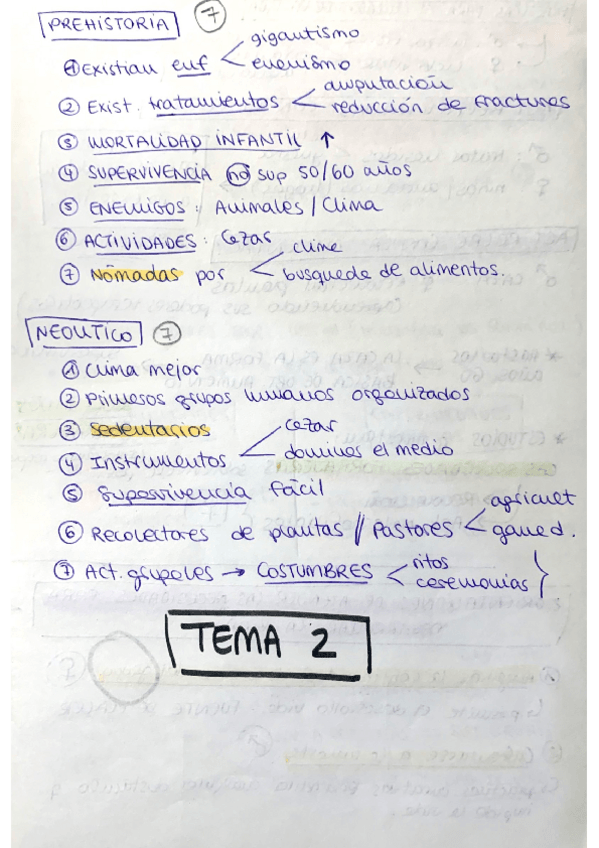 PREHISTORIA 7
gigantismo
① Existian enf < enenismo
amputación
② Exist. tratamientos < reducción de fracturas
③ MORTALIDAD INFANTIL ↑
④ SUPERVIVENCIA no sup 50/60 años
⑤ ENEMIGOS: Animales / Clima
⑥ ACTIVIDADES: Cazar
clima
⑦ Nómadas por < busqueda de alimentos.
NEOLITICO 7
① Clima mejor
② Primeros grupos humanos organizados
③ Sedentarios
cazar
④ Instrumentos < dominar el medio
⑤ Supervivencia fácil
agricult
⑥ Recolectores de plantas // Pastores < ganad.
⑦ Act. grupales → COSTUMBRES < ritos
ceremonias }
TEMA 2